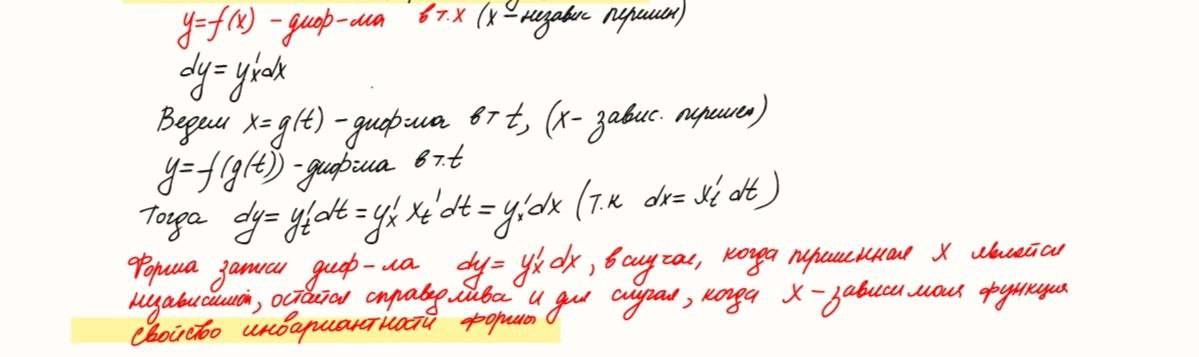 y=f(x) - диф-ма в т.х (x - независ перемен)
dy = y'ₓdx
Ведем x=g(t) - диф-ма в т t, (x - завис. перемен)
y=f(g(t)) - диф-ма в т.t
Тогда dy = y'ₜdt = y'ₓ xₜ'dt = y'ₓdx (т.к dx = x'ₜ dt)
Форма записи диф-ла dy = y'ₓ dx, в случае, когда переменная X является
независимой, остаётся справедлива и для случая, когда X - зависимая функция
свойство инвариантности формы